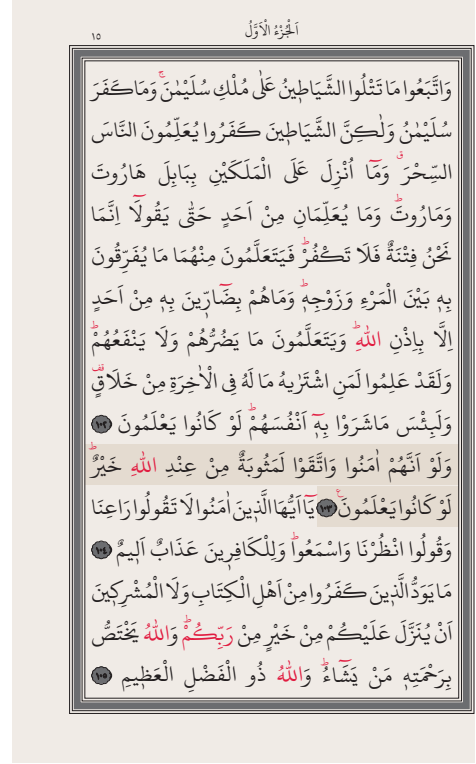 اَلْجُزْءُ الْاَوَّلُ
١٥
وَاتَّبَعُوا مَا تَتْلُوا الشَّيَاط۪ينُ عَلٰى مُلْكِ سُلَيْمٰنَۚ وَمَا كَفَرَ
سُلَيْمٰنُ وَلٰكِنَّ الشَّيَاط۪ينَ كَفَرُوا يُعَلِّمُونَ النَّاسَ
السِّحْرَۗ وَمَٓا اُنْزِلَ عَلَى الْمَلَكَيْنِ بِبَابِلَ هَارُوتَ
وَمَارُوتَۜ وَمَا يُعَلِّمَانِ مِنْ اَحَدٍ حَتّٰى يَقُولَٓا اِنَّمَا
نَحْنُ فِتْنَةٌ فَلَا تَكْفُرْۜ فَيَتَعَلَّمُونَ مِنْهُمَا مَا يُفَرِّقُونَ
بِه۪ بَيْنَ الْمَرْءِ وَزَوْجِه۪ۜ وَمَا هُمْ بِضَٓارّ۪ينَ بِه۪ مِنْ اَحَدٍ
اِلَّا بِاِذْنِ اللّٰهِۜ وَيَتَعَلَّمُونَ مَا يَضُرُّهُمْ وَلَا يَنْفَعُهُمْۜ
وَلَقَدْ عَلِمُوا لَمَنِ اشْتَرٰيهُ مَا لَهُ فِي الْاٰخِرَةِ مِنْ خَلَاقٍۗ
وَلَبِئْسَ مَا شَرَوْا بِه۪ٓ اَنْفُسَهُمْۜ لَوْ كَانُوا يَعْلَمُونَ ١٠٢
وَلَوْ اَنَّهُمْ اٰمَنُوا وَاتَّقَوْا لَمَثُوبَةٌ مِنْ عِنْدِ اللّٰهِ خَيْرٌۜ
لَوْ كَانُوا يَعْلَمُونَ۟ ١٠٣ يَٓا اَيُّهَا الَّذ۪ينَ اٰمَنُوا لَا تَقُولُوا رَاعِنَا
وَقُولُوا انْظُرْنَا وَاسْمَعُواۜ وَلِلْكَافِر۪ينَ عَذَابٌ اَل۪يمٌ ١٠٤
مَا يَوَدُّ الَّذ۪ينَ كَفَرُوا مِنْ اَهْلِ الْكِتَابِ وَلَا الْمُشْرِك۪ينَ
اَنْ يُنَزَّلَ عَلَيْكُمْ مِنْ خَيْرٍ مِنْ رَبِّكُمْۜ وَاللّٰهُ يَخْتَصُّ
بِرَحْمَتِه۪ مَنْ يَشَٓاءُۜ وَاللّٰهُ ذُو الْفَضْلِ الْعَظ۪يمِ ١٠٥